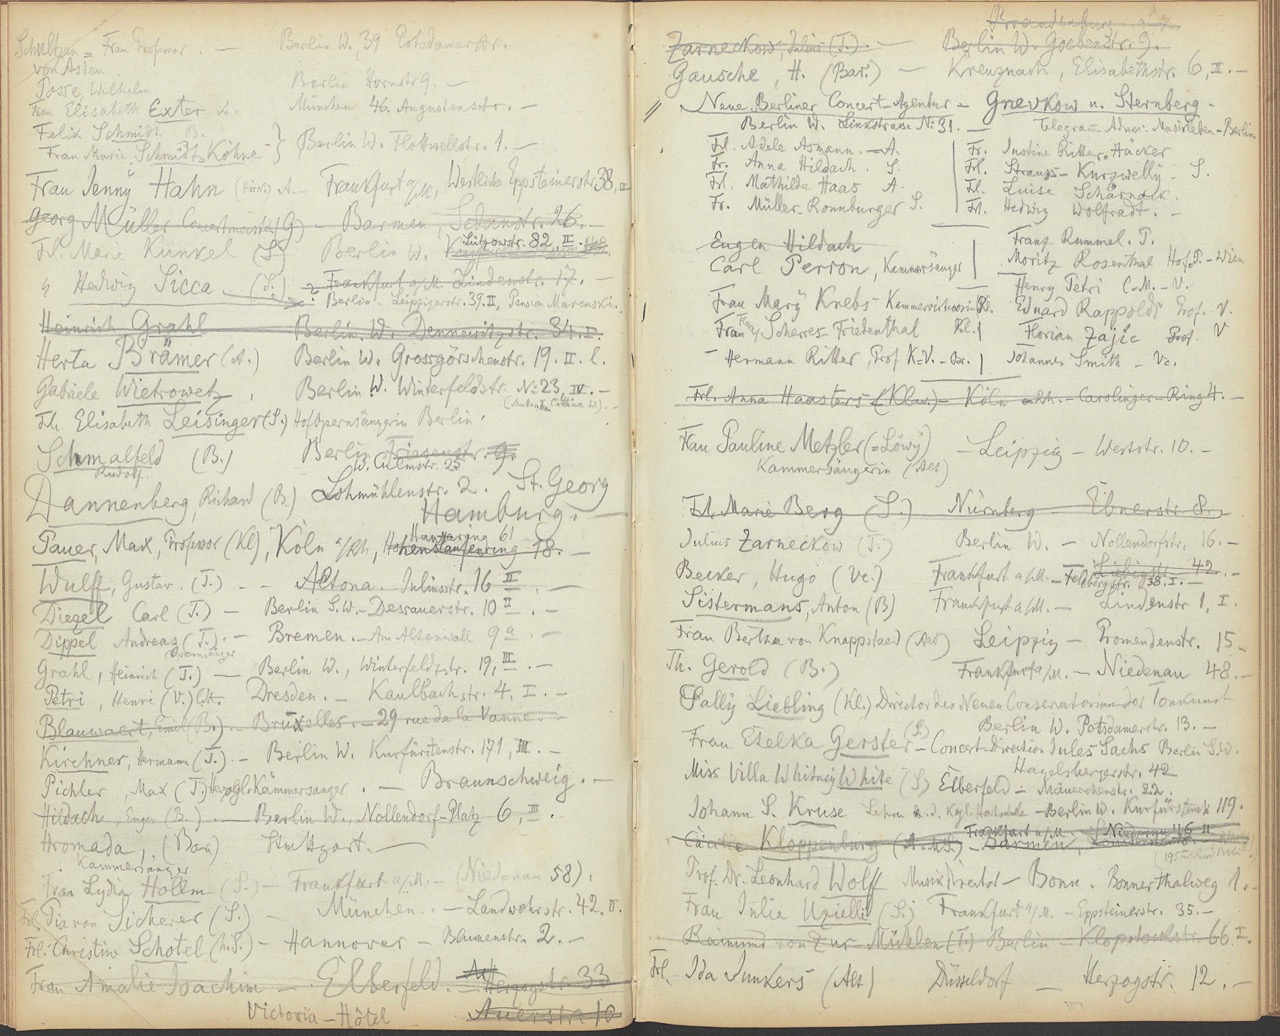 Schultzen= Frau Professor. — Berlin W. 39 Potsdamerstr.
von Asten
Posse Wilhelm Berlin Hornstr 9. —
Frau Elisabeth Exter A. München 46. Augustenstr. —
Felix Schmidt B.
Frau Marie Schmidt=Köhne } Berlin W. Flottwellstr. 1. —
Frau Jenny Hahn A. Frankfurt a/M., Westliche Eppsteinerstr 38, II
Georg Müller Concertmeister (G) — Barmen, Sedanstr. 26. —
Frl. Marie Künkel (S) Berlin W. Lützowstr. 82, II
" Hedwig Sicca (S.) — Frankfurt a/M. Lindenstr. 17. —
? Berlin — Leipzigerstr. 39. II, Pension
Heinrich Grahl Berlin. W. Dennewitzstr. 34. I.
Herta Brämer (A.) Berlin W. Grossgörschenstr. 19. II. l.
Gabriele Wietrowetz, Berlin W. Winterfeldstr. No 23, IV. —
Frl. Elisabeth Leisinger (S.) Hofopernsängerin Berlin.
Schmalfeld (B.) Berlin 9.
Rudolf. W. Culmstr. 25
Dannenberg, Richard (B.) Lohmühlenstr. 2. St. Georg
Hamburg. —
Hansaring 61
Pauer, Max, Professor (Kl), Köln a/Rh, Hohenstaufenring 18. —
Wulff, Gustav. (T.) — Altona. Juliusstr. 16 II. —
Diezel Carl (T.) — Berlin S.W. — Dessauerstr. 10 II. —
Dippel Andreas (T.). — Bremen. — Am Altenwall 9 a. —
Opernsänger
Grahl, Heinrich (T.) — Berlin W., Winterfeldtstr. 19, III. —
Petri, Henri (V.) C.M. Dresden. — Kaulbachstr. 4, I. —
Blauwaert, Emil (B.). — Bruxelles. — 29 rue de la Vanne. —
Kirchner, Hermann (T.). — Berlin W. Kurfürstenstr. 171, III. —
Pichler, Max (T.) Herzogl. Kammersänger. — Braunschweig. —
Hildach, Eugen (B.) — Berlin W., Nollendorf-Platz 6, III. —
Hromada, (Bar) Stuttgart. —
Kammersänger
Frau Lydia Hollm (S.) — Frankfurt a/M. — (Niedenau 58).
Frl. Pia von Sicherer (S.) — München. — Landwehrstr. 42. II.
Frl. Christine Schotel (M.S.) — Hannover — Blumenstr. 2. —
Frau Amalie Joachim — Elberfeld. — Herzogstr. 33
Victoria-Hôtel Auerstr. 10
Brandenburg
Zarneckow, Julius (T.). — Berlin W. Goebenstr. 9.
Gausche, H. (Bar.) — Kreuznach, Elisabethstr. 6, II. —
Neue Berliner Concert-Agentur = Gnevkow u. Sternberg.
Berlin W. Linkstrasse No 31. — Telegram-Adresse: Musikleben-Berlin.
Frl. Adele Asmann. — A. Fr. Justine Ritter-Häcker
Fr. Anna Hildach. S. Frl. Strauss-Kurzwelly — S.
Frl. Mathilde Haas A. Frl. Luise Schärnack.
Fr. Müller-Ronneburger S. Frl. Hedwig Wolfradt. —
Eugen Hildach Franz Rummel. P.
Carl Perron, Kammersänger Moritz Rosenthal Hof P. — Wien
Henry Petri C.M. — V.
Frau Mary Krebs — Kammervirtuosin Kl. Eduard Rappoldi Prof. V.
Frau Scherres-Friedenthal Kl. Florian Zajic Prof. V
— Hermann Ritter, Prof K. V. — Br. Johannes Smith — Vc.
Frl. Anna Haasters (Klav.) — Köln a. Rh. — Carolinger-Ring 4. —
Frau Pauline Metzler (=Löwy) — Leipzig — Weststr. 10. —
Kammersängerin (Alt)
Frl. Marie Berg (S.) Nürnberg Ebnerstr 8.
Julius Zarneckow (T.) Berlin W. — Nollendorfstr. 16. —
Becker, Hugo (Vc.) Frankfurt a/M. — Feldbergstr. 38. I. —
Sistermans, Anton (B) Frankfurt a/M. — Lindenstr 1, I.
Frau Bertha von Knappstaed (Alt) Leipzig — Promenadenstr. 15 —
Th. Gerold (B.) Frankfurt a/M. — Niedenau 48. —
Sally Liebling (Kl.) Director des Neuen Conservatoriums der Tonkunst
Berlin W. Potsdamerstr. 13. —
Frau Etelka Gerster (S.) — Concert-Direction Jules Sachs Berlin S.W.
Hagelsbergerstr. 42
Miss Villa Whitney White (S) Elberfeld — Mäuerchenstr. 22.
Johann S. Kruse Lehrer a. d. Kgl. Hochschule — Berlin W. Kurfürstenstr 119.
Cäcilie Kloppenburg (A.-M.S.) — Barmen,
Frankfurt a/M. Niedenau 46 II
Prof. Dr. Leonhard Wolff Musikdirector — Bonn. Bonnerthalweg 1. —
Frau Julia Uzielli (S.) Frankfurt a/M. — Eppsteinerstr. 35. —
Raimund von Zur-Mühlen (T.) Berlin — Klopstockstr. 66. I.
Frl. Ida Junkers (Alt) Düsseldorf — Herzogstr. 12. —